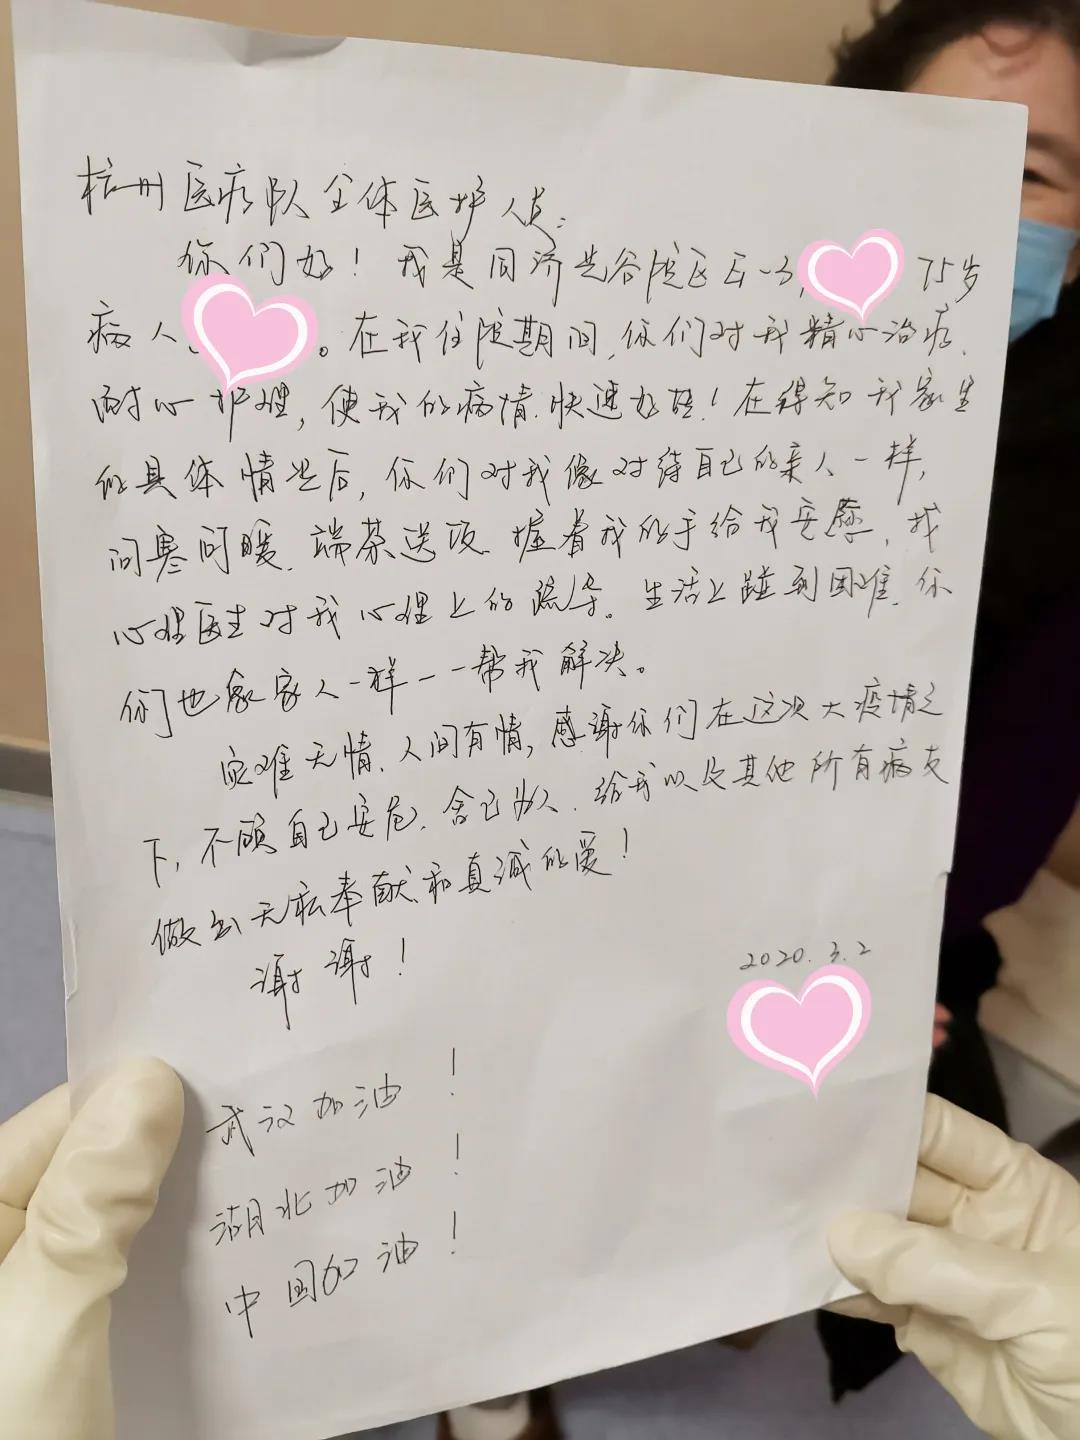 杭州医疗队全体医护人员：
你们好！我是同济光谷院区E-3, 75岁
病人、。在我住院期间，你们对我精心治疗、
耐心护理，使我的病情快速好转！在得知我家里
的具体情况后，你们对我像对待自己的亲人一样，
问寒问暖、端茶送饭、握着我的手给我安慰、找
心理医生对我心理上的疏导。生活上碰到困难、你
们也象家人一样一一帮我解决。
灾难无情、人间有情，感谢你们在这次大疫情之
下，不顾自己安危、舍己为人、给我以及其他所有病友
做出无私奉献和真诚的爱！
谢谢！
2020.3.2
武汉加油！
湖北加油！
中国加油！